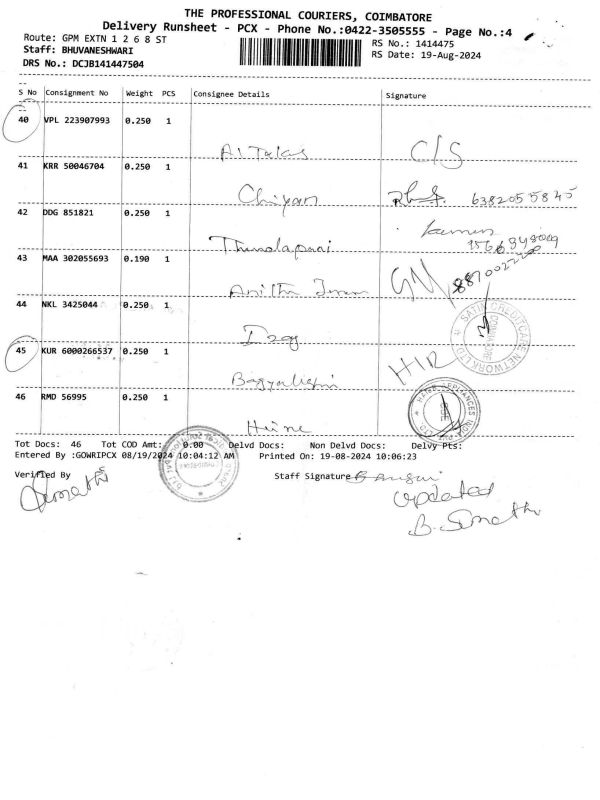 THE PROFESSIONAL COURIERS, COIMBATORE
Delivery Runsheet - PCX - Phone No.:0422-3505555 - Page No.:4
Route: GPM EXTN 1 2 6 8 ST
RS No.: 1414475
Staff: BHUVANESHWARI
RS Date: 19-Aug-2024
DRS No.: DCJB141447504
S No Consignment No Weight PCS Consignee Details Signature
40 VPL 223907993 0.250 1
C/S
41 KRR 50046704 0.250 1
Chiyan 6382055845
42 DDG 851821 0.250 1
43 MAA 302055693 0.190 1
44 NKL 3425044 0.250 1
SATIN CREDITCARE NETWORK LTD
COIMBATORE
45 KUR 6000266537 0.250 1
HIR
46 RMD 56995 0.250 1
Heine
Tot Docs: 46 Tot COD Amt: 0.00 Delvd Docs: Non Delvd Docs: Delvy Pts:
Entered By :GOWRIPCX 08/19/2024 10:04:12 AM Printed On: 19-08-2024 10:06:23
Verified By Staff Signature
Updated